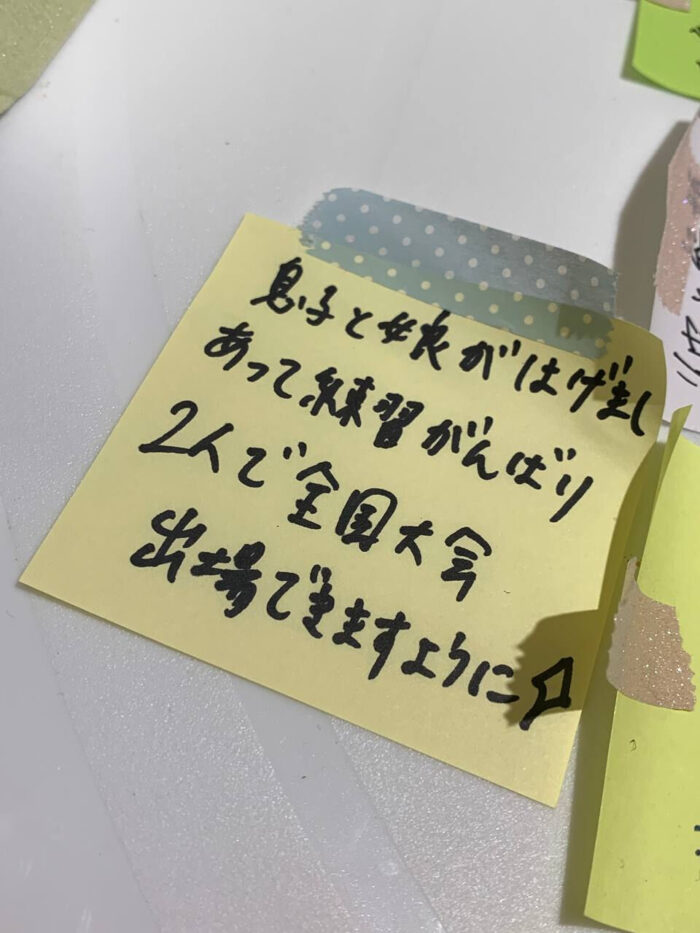 息子と娘がはげまし
あって、練習がんばり
2人で全国大会
出場できますように